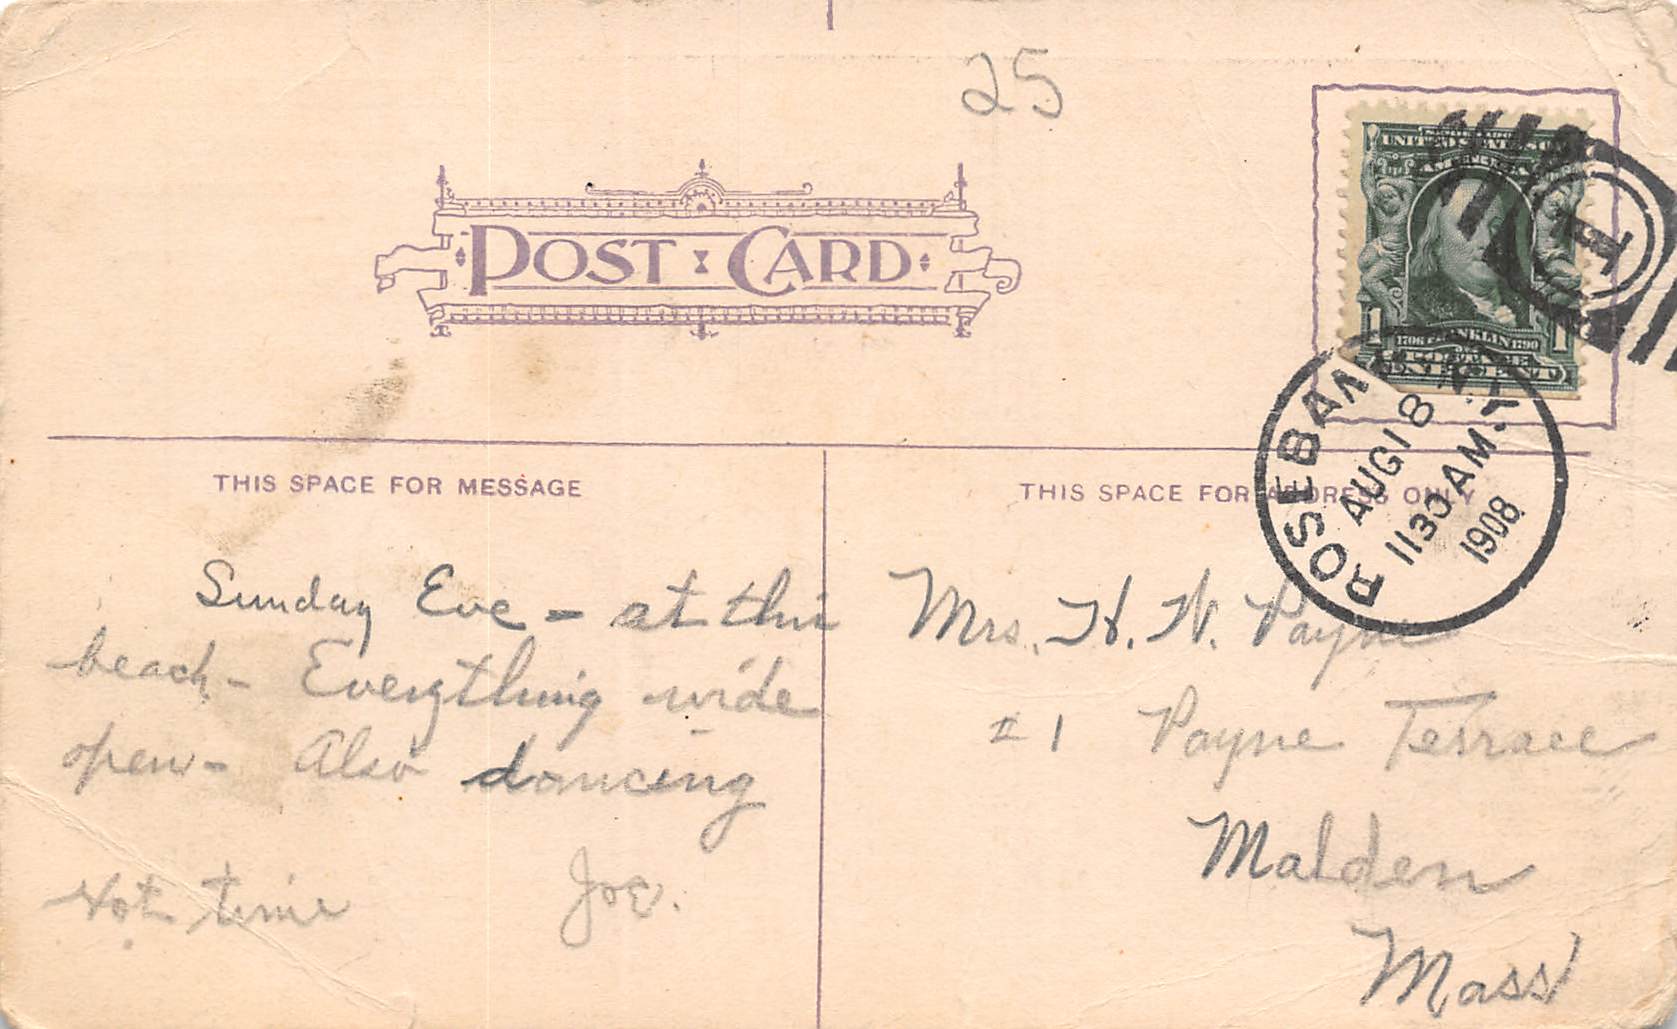 25
POST CARD
UNITED STATES OF
AMERICA
1 1706 FRANKLIN 1790 1
POSTAGE
ROSEBANK
AUG 18
1130 AM
1908
THIS SPACE FOR MESSAGE
THIS SPACE FOR ADDRESS ONLY
Sunday Eve - at this
beach - Everything wide
open - Also dancing
Hot time Joe.
Mrs. H. W. Payne
#1 Payne Terrace
Malden
Mass